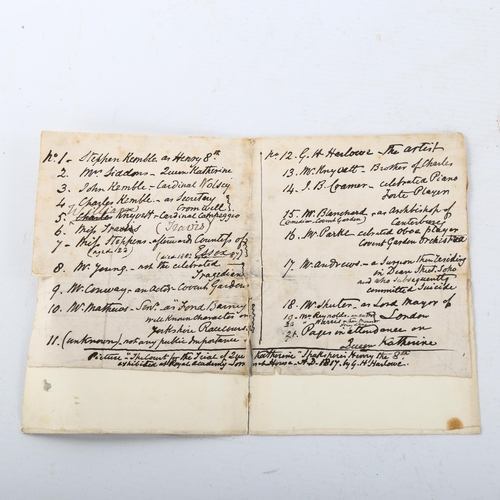 No 1 - Stephen Kemble as Henry 8th
2. Mrs Siddons - Queen Katherine
3. John Kemble - Cardinal Wolsey
4 Charles Kemble - as Secretary
Cromwell
5. Charles Knyvett - Cardinal Campeggio
6. Miss Travis (Travis)
7 - Miss Stephens - afterwards Countess of
Essex
8. Mr Young - not the celebrated
Tragedian
9. Mr Conway - an actor Covent Garden
10. Mr Mathews - Senr. as "Lord Barney
well known character" on
Yorkshire Racecourse
11. (unknown) not any public Importance
No 12. G. H. Harlowe - the artist
13. Mr Knyvett - Brother of Charles
14. J. B. Cramer - celebrated Piano
Forte Player
15. Mr Blanchard - as Archbishop of
(Comedian - Covent Garden) Canterbury
16. Mr Parke celebrated oboe player
Covent Garden Orchestra
17. Mr Andrews - a Surgeon then residing
in Dean Street Soho
and who subsequently
committed suicide
18. Mr Shuter - as Lord Mayor of
London
19. Mr Reynolds
20
21. Pages in attendance on
Queen Katherine
Picture "The Court for the Trial of Queen Katherine" Shakspere's Henry the 8th
exhibited at Royal Academy Somerset House A.D. 1817. by G. H. Harlowe.